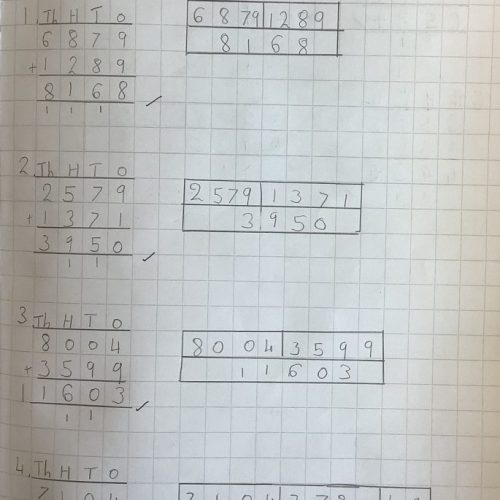 1. Th H T O
6 8 7 9
+ 1 2 8 9
8 1 6 8
1 1 1
6 8 79 1 2 8 9
8 1 6 8
2. Th H T O
2 5 7 9
+ 1 3 7 1
3 9 5 0
1 1
2 5 7 9 1 3 7 1
3 9 5 0
3. Th H T O
8 0 0 4
+ 3 5 9 9
1 1 6 0 3
1 1
8 0 0 4 3 5 9 9
1 1 6 0 3
4. Th H T O